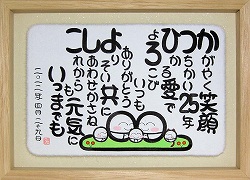 かがやく笑顔
つちかい25年
ひかる愛で
よろこび
いつも
ありがとう
よりそい共に
しあわせかさね
これから
も元気に
いつまでも
四月二十九日